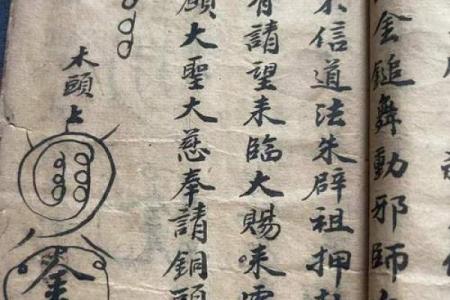 金鎚舞動邪師
不信道法朱辟祖押
有請望来臨大賜
願大聖大慈奉請銅頭
木頭上
金